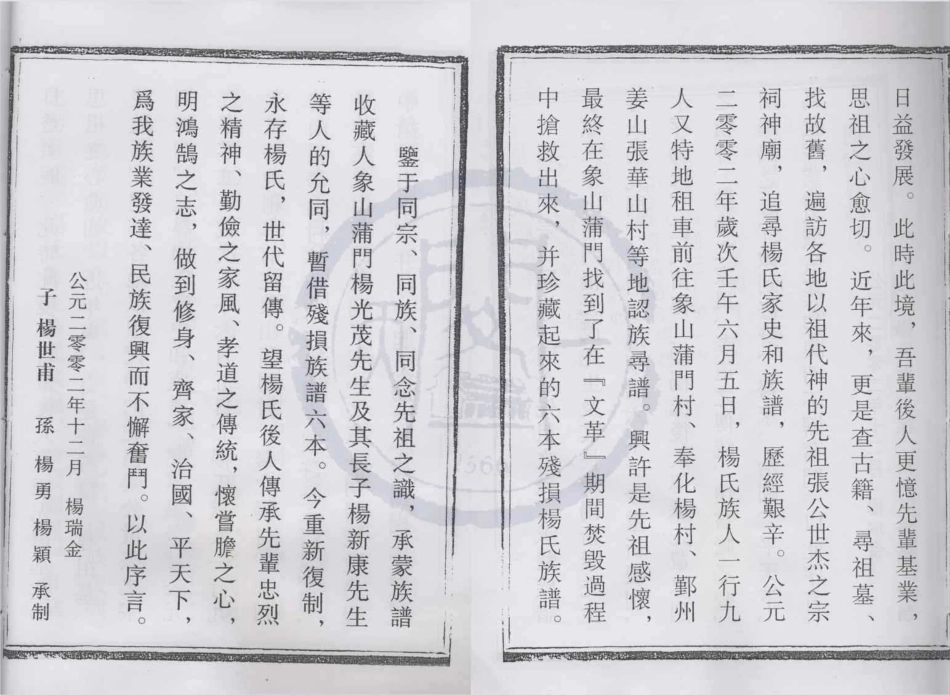 日益發展。此時此境，吾輩後人更憶先輩基業，
思祖之心愈切。近年來，更是查古籍、尋祖墓、
找故舊，遍訪各地以祖代神的先祖張公世杰之宗
祠神廟，追尋楊氏家史和族譜，歷經艱辛。公元
二零零二年歲次壬午六月五日，楊氏族人一行九
人又特地租車前往象山蒲門村、奉化楊村、鄞州
姜山張華山村等地認族尋譜。興許是先祖感懷，
最終在象山蒲門找到了在『文革』期間焚毀過程
中搶救出來，并珍藏起來的六本殘損楊氏族譜。
鑒于同宗、同族、同念先祖之識，承蒙族譜
收藏人象山蒲門楊光茂先生及其長子楊新康先生
等人的允同，暫借殘損族譜六本。今重新復制，
永存楊氏，世代留傳。望楊氏後人傳承先輩忠烈
之精神、勤儉之家風、孝道之傳統，懷嘗膽之心，
明鴻鵠之志，做到修身、齊家、治國、平天下，
爲我族業發達、民族復興而不懈奮鬥。以此序言。
公元二零零二年十二月 楊瑞金
子 楊世甫 孫 楊勇 楊穎 承制